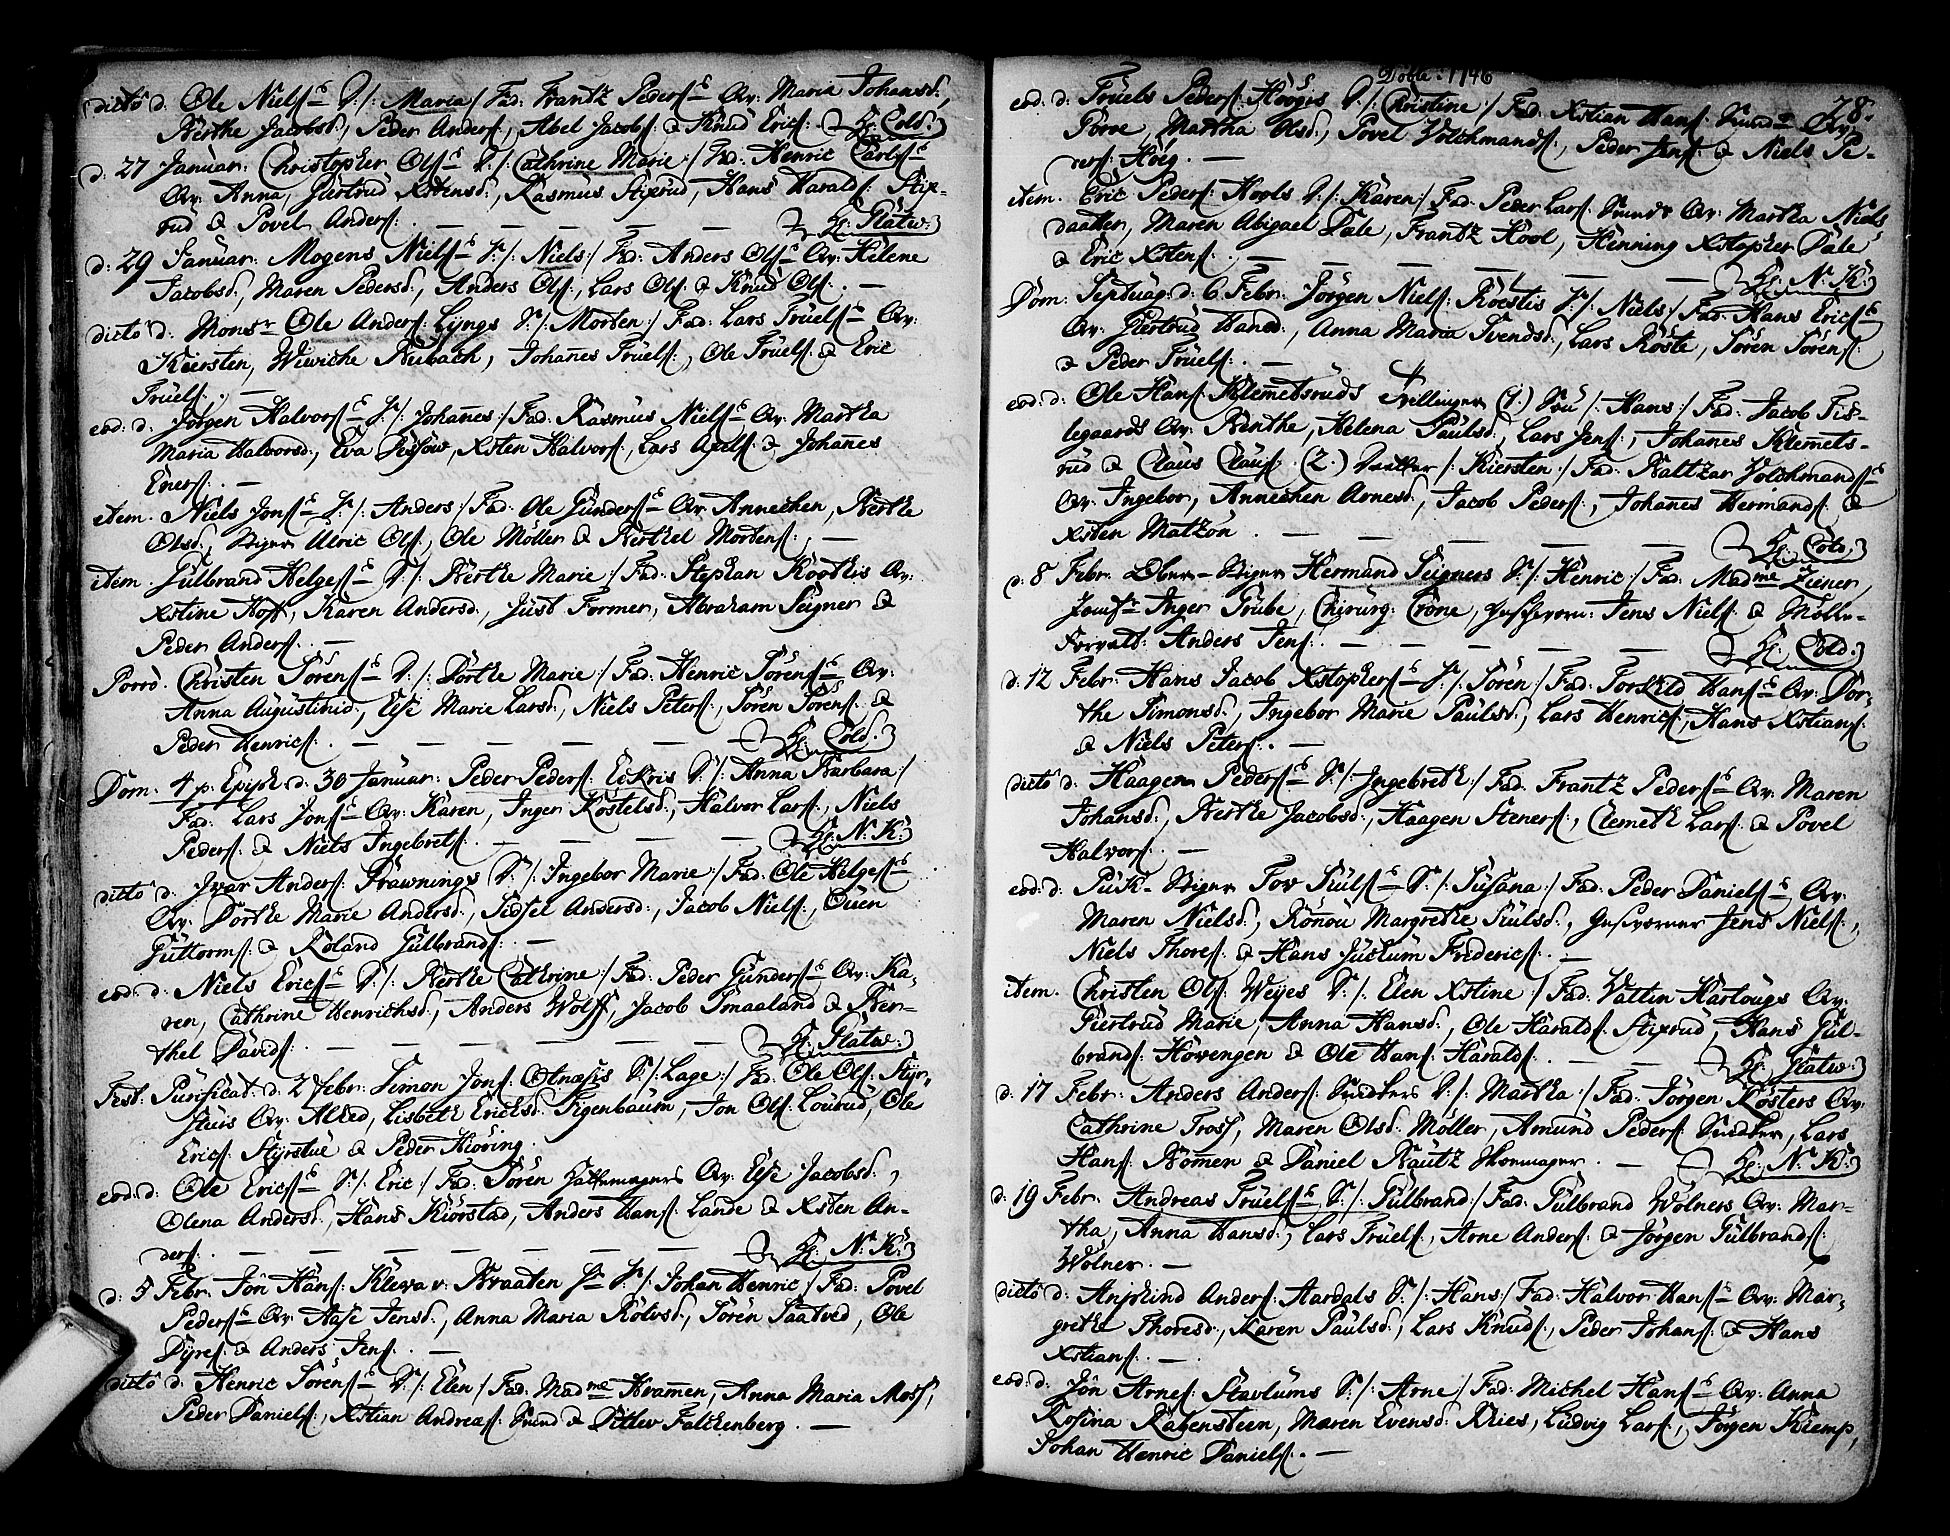 ditto d. Ole Niels: D:/: Maria/ Fad: Frantz Peders: Qv: Maria Johansd:,
Berthe Jacobsd:, Peder Anders:, Abel Jacobs: & Knud Erics: Hr: Cold.
d. 27 Januar: Christopher Ols: D:/: Cathrine Marie:/ Fad: Henric Carls:
Qv: Anna, Giertrud Xstensd:, Rasmus Stixrud, Hans Harald: Stix-
rud & Povel Anders:. — — — — — Hr: Flatw:
d: 29 Januar: Mogens Niels: S:/: Niels:/ Fad: Anders Ols: Qv: Helene
Jacobsd:, Maren Pedersd:, Anders Ols:, Lars Ols: & Knud Ols:. —
ditto d: Monsr Ole Anders: Lyngs S:/: Morten:/ Fad: Lars Truels: Qv:
Kiersten, Wiwiche Rubach, Johanes Truels:, Ole Truels: & Eric
Truels:. —
eod: d: Jørgen Halvors: S:/: Johannes:/ Fad: Rasmus Niels: Qv: Martha
Maria Halvorsd:, Eva, Xsten Halvors:, Lars Axels: & Johanes
Eners:. —
item. Niels Jons: S:/: Anders:/ Fad: Ole Gunders: Qv: Annechen, Berthe
Olsd:, Stiger Ulric Ols:, Ole Möller & Berthel Mortens:. —
item. Gulbrand Helges: D:/: Berthe Marie:/ Fad: Stephan Qv:
Xstine Hoff, Karen Andersd:, Just Former, Abraham Seigner &
Peder Anders:. —
Porrò. Christen Sörens: D:/: Dorthe Marie:/ Fad: Henric Sörens: Qv:
Anna Augustinid:, Else Marie Larsd:, Niels Peters:, Sören Sörens: &
Peder Henrics:. — — — — — Hr: Cold.
Dom: 4 p. Epiph: d: 30 Januar: Peder Peders: Eekris D:/: Anna Barbara:/
Fad: Lars Jons: Qv: Karen, Inger Kostelsd:, Halvor Lars:, Niels
Peders: & Niels Ingebrets:. — — — Hr: N: K:
ditto d: Jvar Anders: Brawnings D:/: Ingebor Marie:/ Fad: Ole Helges:
Qv: Dorthe Marie Andersd:, Sidsel Andersd:, Jacob Niels:, Ouen
Guttorms: & Roland Gulbrands:. —
eod: d: Niels Erics: D:/: Berthe Cathrine:/ Fad: Peder Gunders: Qv: Ka-
ren, Cathrine Henrichsd:, Anders Wolff, Jacob Smaaland & Ber-
thel Davids:. — — — — — Hr: Flatw:
Fest: Purificat: d: 2 febr: Simon Jons: Otnæsis S:/: Lage:/ Fad: Ole Ols: Styr-
stuis Qv: Alhed, Lisbeth Ericksd: Figenbaum, Jon Ols: Lourud, Ole
Erics: Styrstue & Peder Hiøring.
eod: d: Ole Erics: S:/: Eric:/ Fad: Sören Qv: Else Jacobsd:,
Olena Andersd:, Hans Kiörstad, Anders Hans: Lande & Xsten An-
ders:. — — — — — Hr: N: K:
d: 5 Febr: Jon Hans: Klewa v: Braaten S:/: Johan Henric:/ Fad: Povel
Peders: Qv: Aase Jensd:, Anna Maria Rolvsd:, Sören Saatved, Ole
Dyres: & Anders Jens:. —
ditto d: Henric Sörens: D:/: Elen:/ Fad: Madme Kramen, Anna Maria Moss,
Peder Daniels:, Xstian Andreæs: Svend & Ditlev Falckenberg. —
Döbte: 1746
28.
eod: d: Truels Peders: Höegs D:/: Christine:/ Fad: Xstian Hans: Qv:
Tove, Martha Olsd:, Povel Volchmands:, Peder Jens: & Niels Pe-
ders: Höeg. —
item. Eric Peders: Hoels D:/: Karen:/ Fad: Peder Lars: Qv: Martha Niels
daatter, Maren Abigael Dale, Frantz Hool, Henning Xstopher Dale
& Eric Xstens:. — — — — — Hr: N: K:
Dom: Septuag: d: 6 Febr: Jörgen Niels: S:/: Niels:/ Fad: Hans Erics:
Qv: Giertrud Hansd:, Anna Maria Svendsd:, Lars Röste, Sören Sörens:
& Peder Truels:. —
eod: d: Ole Hans: Klemetsruds Tvillinger (1.) Sön /: Hans:/ Fad: Jacob Fis-
legaards Qv: Berthe, Helena Paulsd:, Lars Jens:, Johannes Klemets-
rud & Claus Claus:. (2.) Daatter /: Kiersten:/ Fad: Baltzar Volchmands:
Qv: Ingebor, Annechen Arnesd:, Jacob Peders:, Johanes Hermands: &
Xsten Matzon. — — — — — Hr: Cold.
d: 8 Febr: Ober-Stiger Hermand Seigners S:/: Henric:/ Fad: Madme Ziener,
Jomfr Inger Grube, Chirurg: Crone, Jens Niels: & Mölle-
Forvalt: Anders Jens:. — — — — — Hr: Cold.
d: 12 Febr: Hans Jacob Xstophers: S:/: Sören:/ Fad: Torkild Hans: Qv: Dor-
the Simonsd:, Ingebor Marie Paulsd:, Lars Henrics:, Hans Xstians:
& Niels Peters:. —
ditto d: Haagen Peders: S:/: Ingebreth:/ Fad: Frantz Peders: Qv: Maren
Johansd:, Berthe Jacobsd:, Haagen Steners:, Clemeth Lars: & Povel
Halvors:. —
eod: d: Puk-Stiger Tov Juls: D:/: Susana:/ Fad: Peder Daniels: Qv:
Maren Nielsd:, Rönou Margrethe Julsd:, Jens Niels:,
Niels Thores: & Hans Juchum Frederics:. —
item. Christen Ols: Weyes D:/: Elen Xstine:/ Fad: Vattin Hartougs Qv:
Giertrud Marie, Anna Hansd:, Ole Haralds: Stixrud, Hans Gul-
brands: Hövengen & Ole Hans: Haralds:. — — Hr: Flatw:
d: 17 Febr: Anders Anders: Snedkers D:/: Martha:/ Fad: Jörgen Kösters Qv:
Cathrine Tross, Maren Olsd: Möller, Amund Peders: Snedker, Lars
Hans: Bömen & Daniel Bautz Skomager. — Hr: N: K:
d: 19 Febr: Andreas Truels: S:/: Gulbrand:/ Fad: Gulbrand Wölners Qv: Mar-
tha, Anna Hansd:, Lars Truels:, Arne Anders: & Jörgen Gulbrands:
Wölner. —
ditto d: Anskind Anders: Aardals S:/: Hans:/ Fad: Halvor Hans: Qv: Mar-
grethe Thoresd:, Karen Paulsd:, Lars Knuds:, Peder Johans: & Hans
Xstians:. —
eod: d: Jön Arnes: Stavlums S:/: Arne:/ Fad: Michel Hans: Qv: Anna
Rosina Rabensteen, Maren Evensd: Kries, Ludvig Lars:, Jörgen Klemp,
Johan Henric Daniels:. —